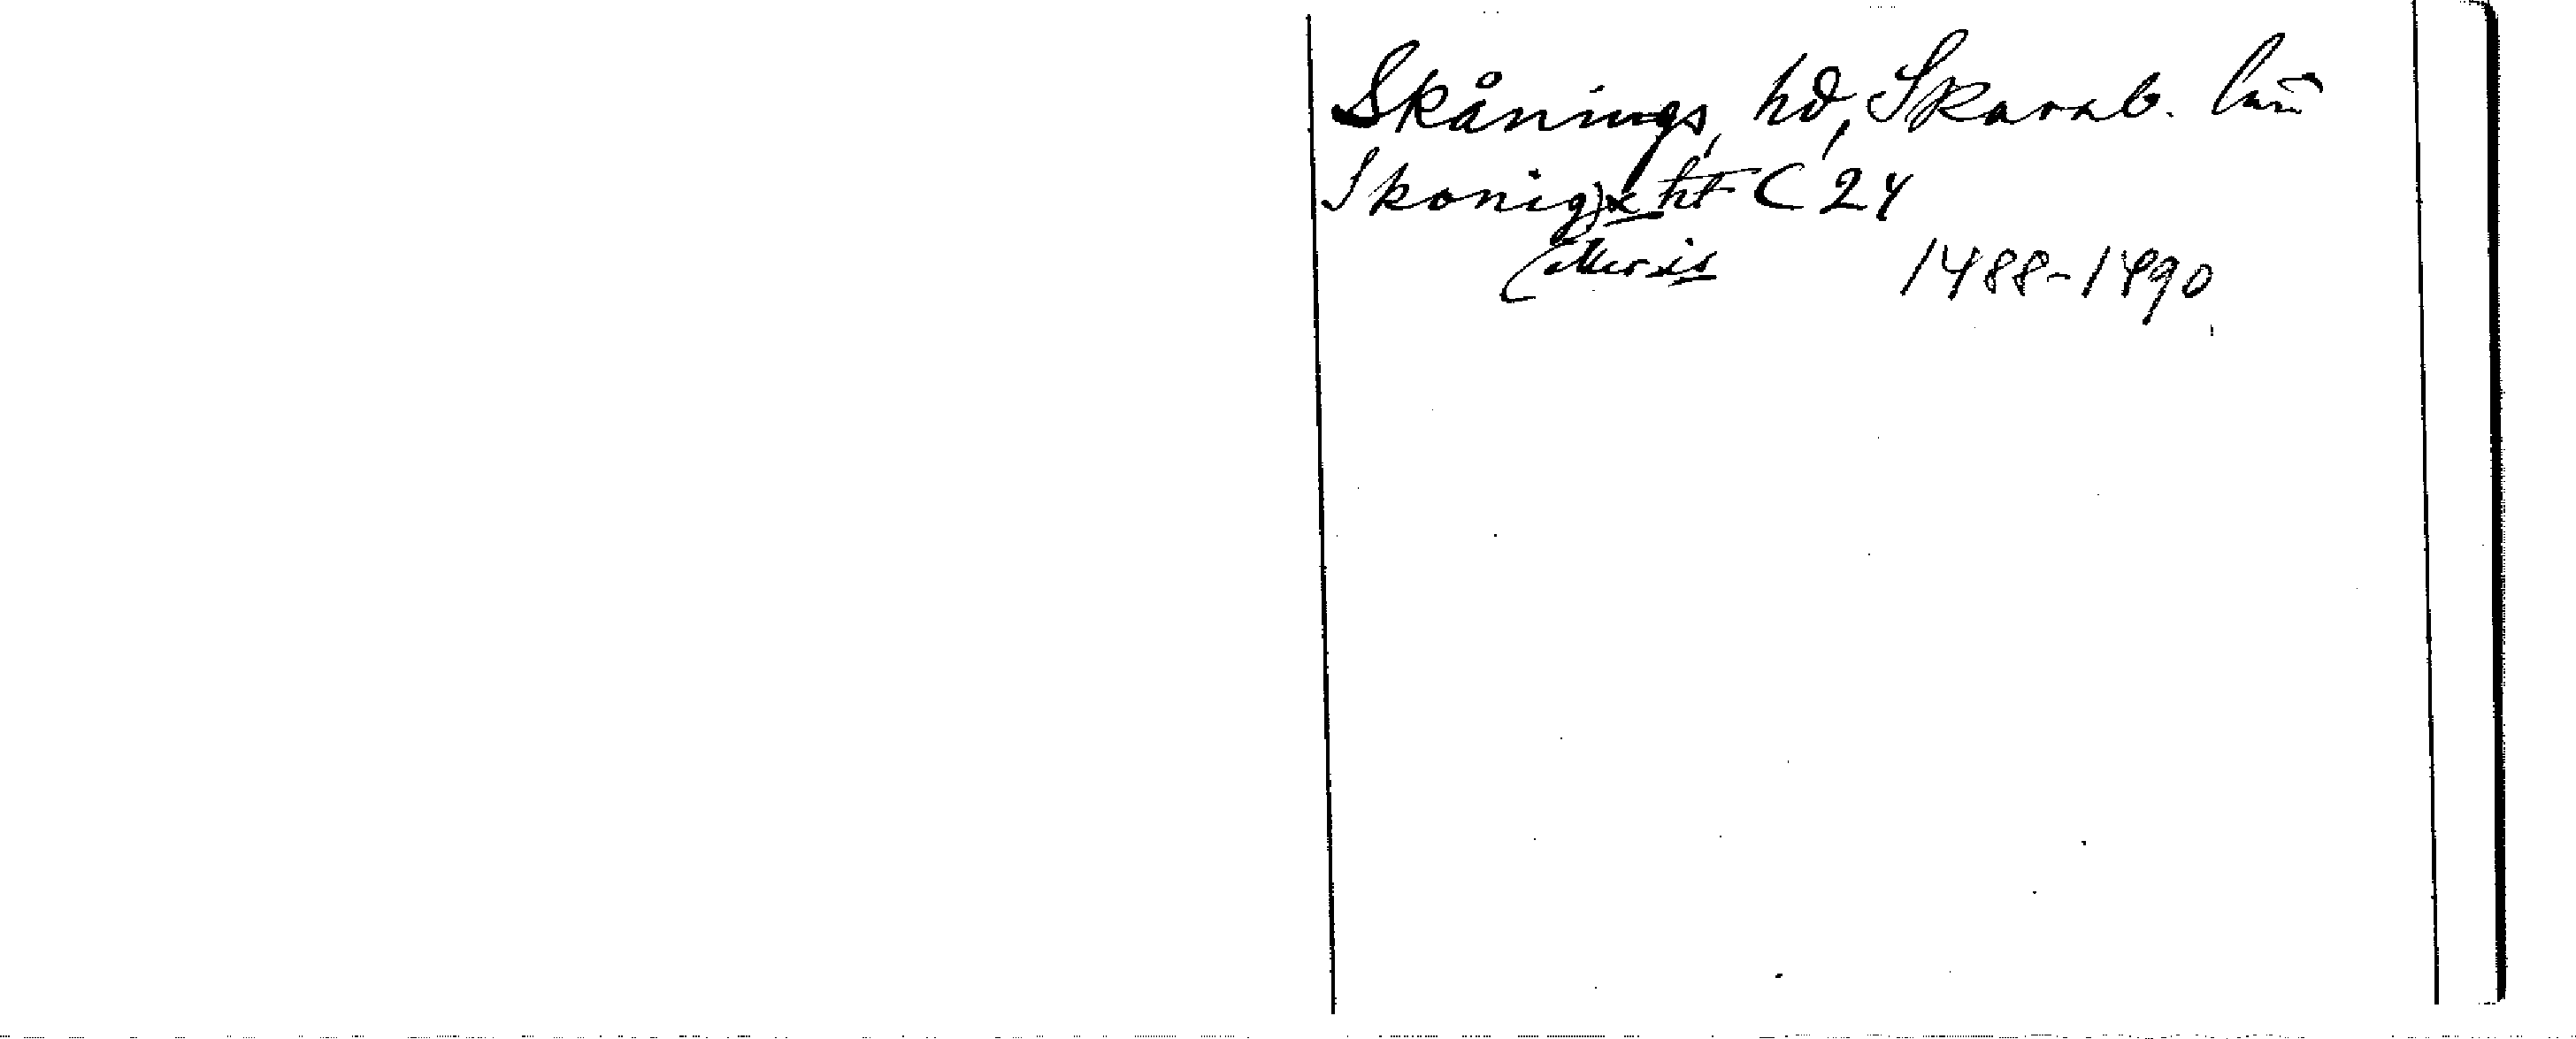 Skånings hd, Skarab. län
Skonigx ht C 24
1488-1490